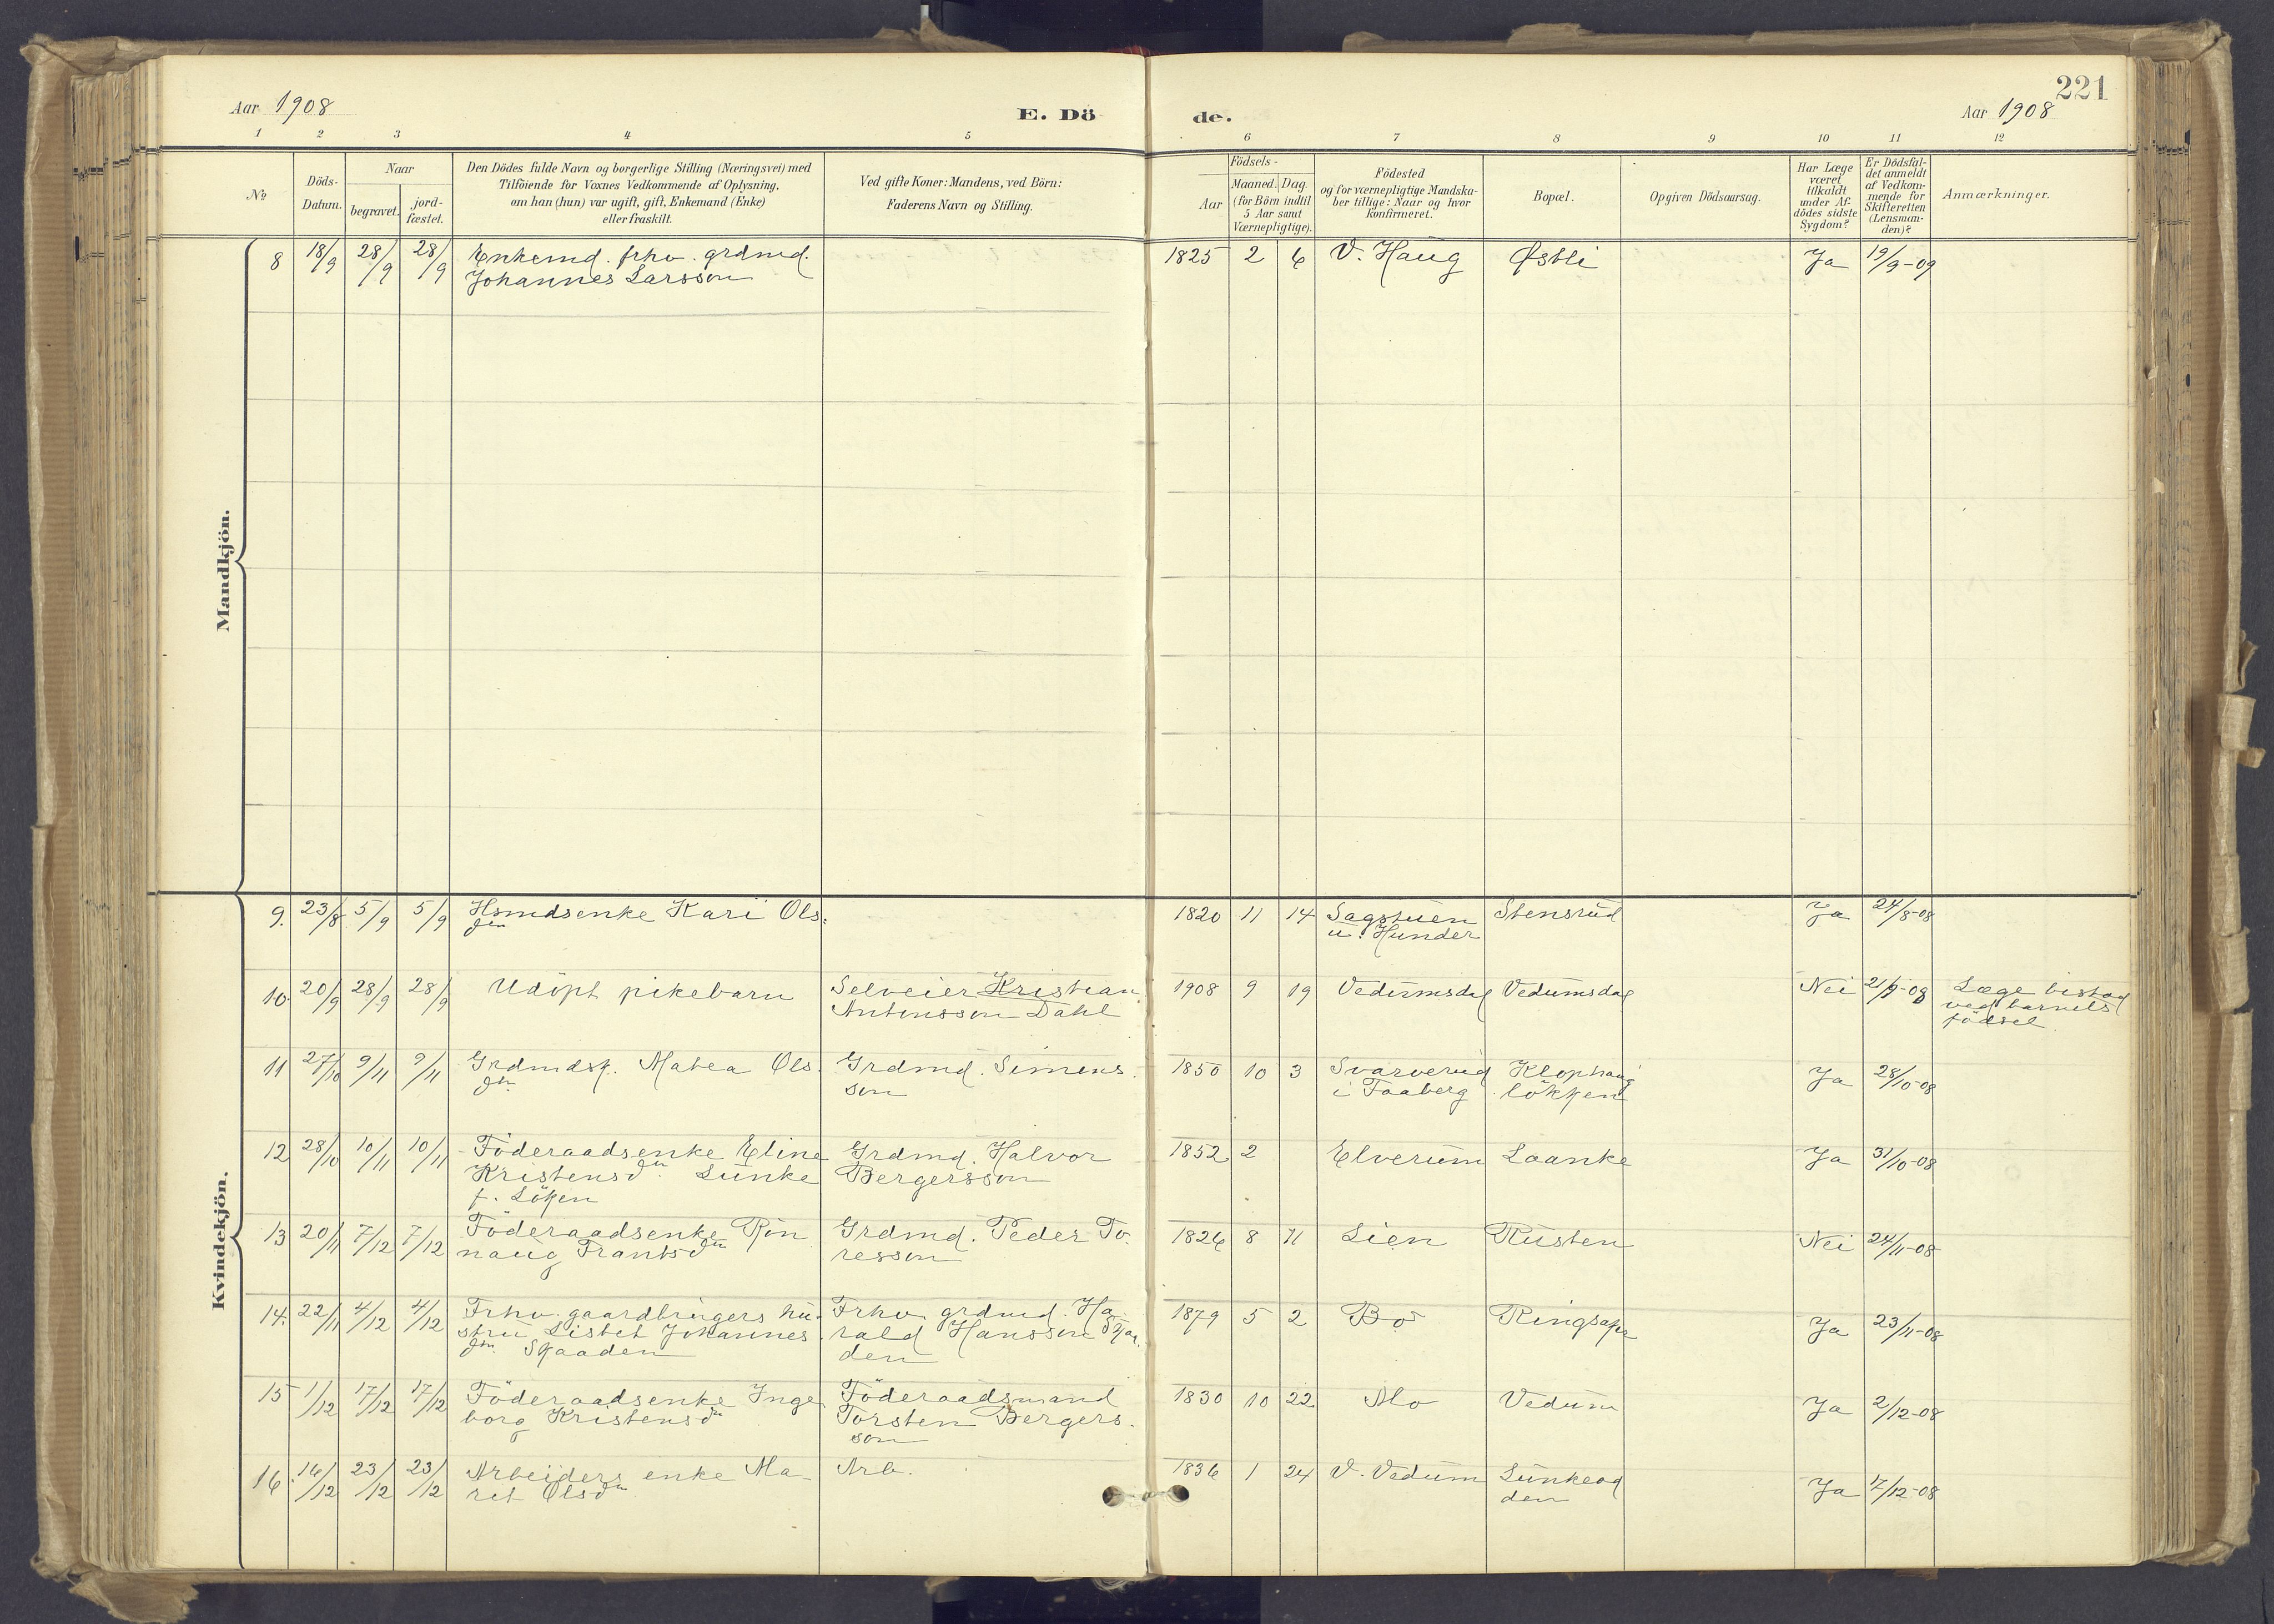 221
Aar 1908
E. Dö
de.
Aar 1908
1 2 3 4 5 6 7 8 9 10 11 12
No
Döds-
Datum.
Naar
begravet.
jord-
fæstet.
Den Dödes fulde Navn og borgerlige Stilling (Næringsvei) med
Tilföiende for Voxnes Vedkommende af Oplysning,
om han (hun) var ugift, gift, Enkemand (Enke)
eller fraskilt.
Ved gifte Koner: Mandens, ved Börn:
Faderens Navn og Stilling.
Födsels-
Aar
Maaned. Dag.
(for Börn indtil
5 Aar samt
Værnepligtige).
Födested
og for værnepligtige Mandska-
ber tillige: Naar og hvor
konfirmeret.
Bopæl.
Opgiven Dödsaarsag.
Har Læge
været
tilkaldt
under Af-
dödes sidste
Sygdom?
Er Dödsfal-
det anmeldt
af Vedkom-
mende for
Skifteretten
(Lensman-
den)?
Anmærkninger.
Mandkjön.
8 18/9 28/9 28/9 Enkemd. frhv. grdmd. 1825 2 6 V. Haug Østli Ja 19/9-09
Johannes Larsson
Kvindekjön.
9. 23/8 5/9 5/9 Hsmdsenke Kari Ols- 1820 11 14 Sagstuen Stensrud Ja 24/8-08
dtr u. Hunder
10. 20/9 28/9 28/9 Udöpt pikebarn Selveier Kristian 1908 9 19 Vedumsdal Vedumsdal Nei 21/9-08 Læge bistod
Antonsson Dahl ved barnets
födsel
11 27/10 9/11 9/11 Grdmdsk. Matea Ols- Grdmd. Simens- 1850 10 3 Svarverud Klophaug Ja 28/10-08
dtr son i Faaberg lökken
12 28/10 10/11 10/11 Föderaadsenke Eline Grdmd. Halvor 1852 2 Elverum Laanke Ja 31/10-08
Kristensdtr Lunke Bergersson
f. Löken
13 20/11 7/12 7/12 Föderaadsenke Rön Grdmd. Peder To- 1826 8 11 Lien Rusten Nei 24/11-08
naug Frantsdtr resson
14. 22/11 4/12 4/12 Frhv. gaardbrugers hu- Frhv. grdmd. Ha- 1879 5 2 Bø Ringsaker Ja 23/11-08
stru Lisbet Johannes rald Hansson Skaa-
dtr Skaaden den
15 1/12 17/12 17/12 Föderaadsenke Inge Föderaadsmand 1830 10 22 Mo Vedum Ja 2/12-08
borg Kristensdtr Torsten Bergers-
son
16 16/12 23/12 23/12 Arbeiders enke Ma- Arb. 1836 1 24 V. Vedum Ja 17/12-08
rit Olsdtr